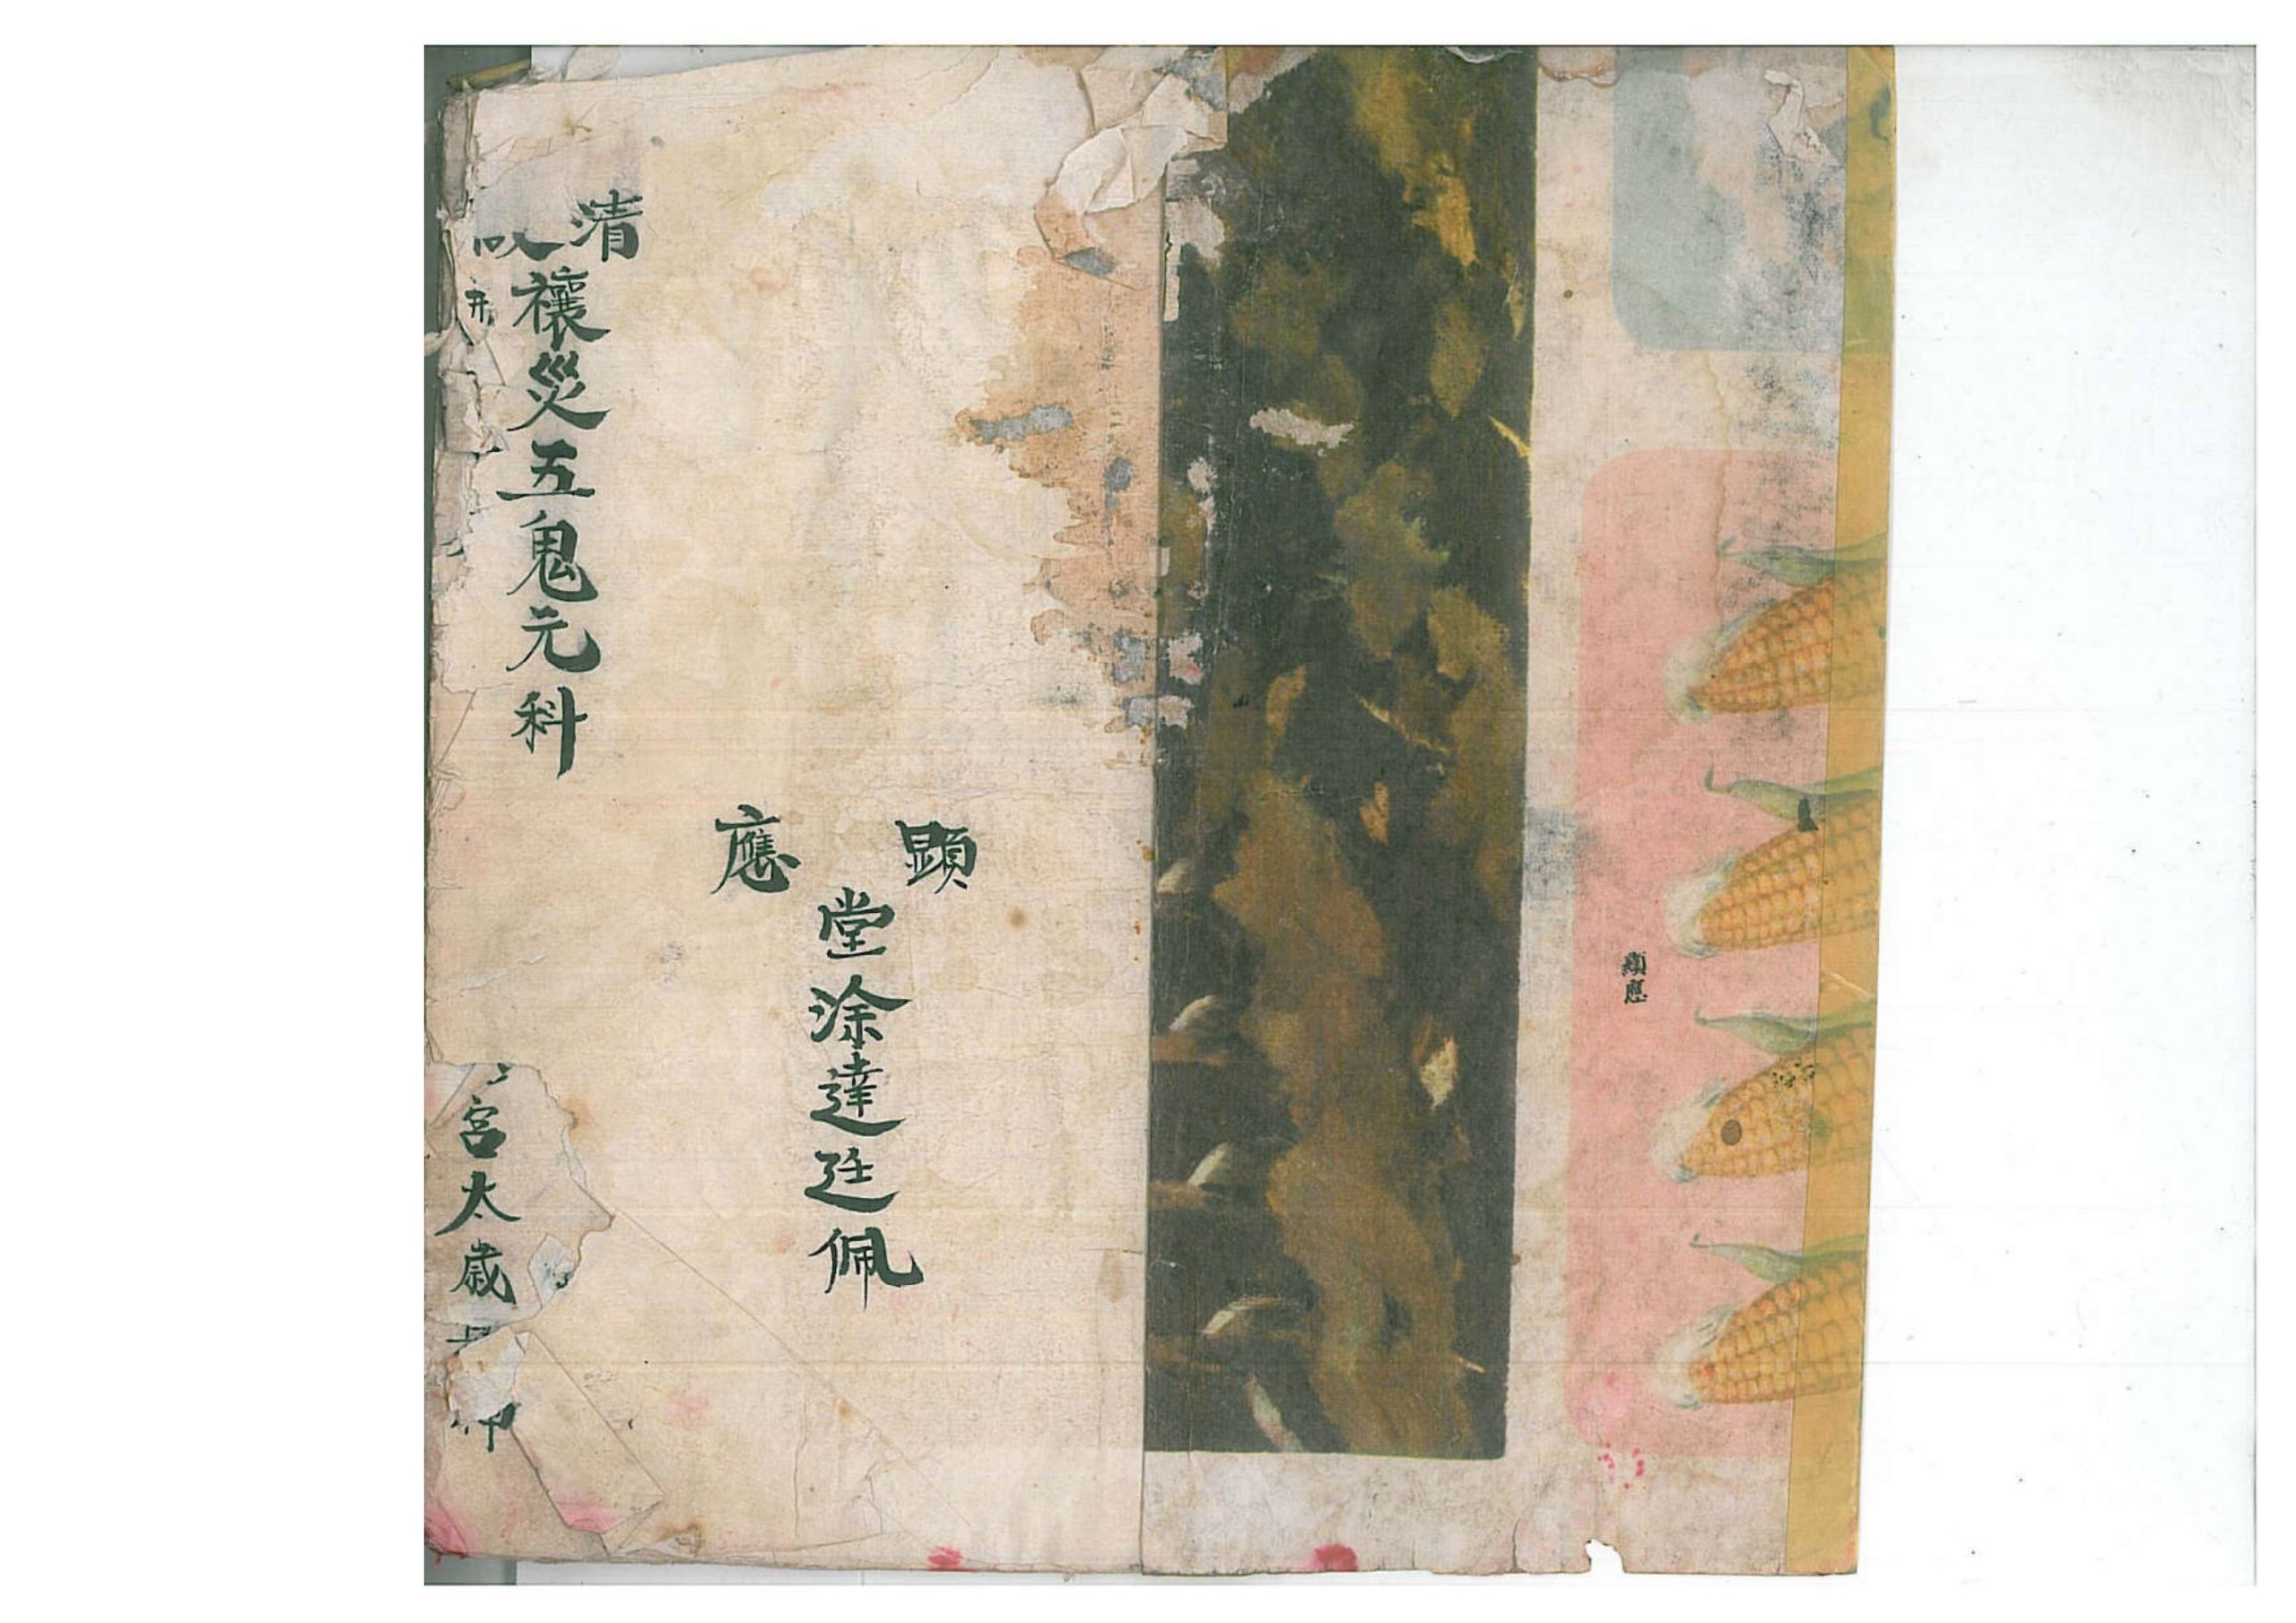 顯應
顯應
堂涂達廷佩
清
禳災五鬼元科
宮太歲